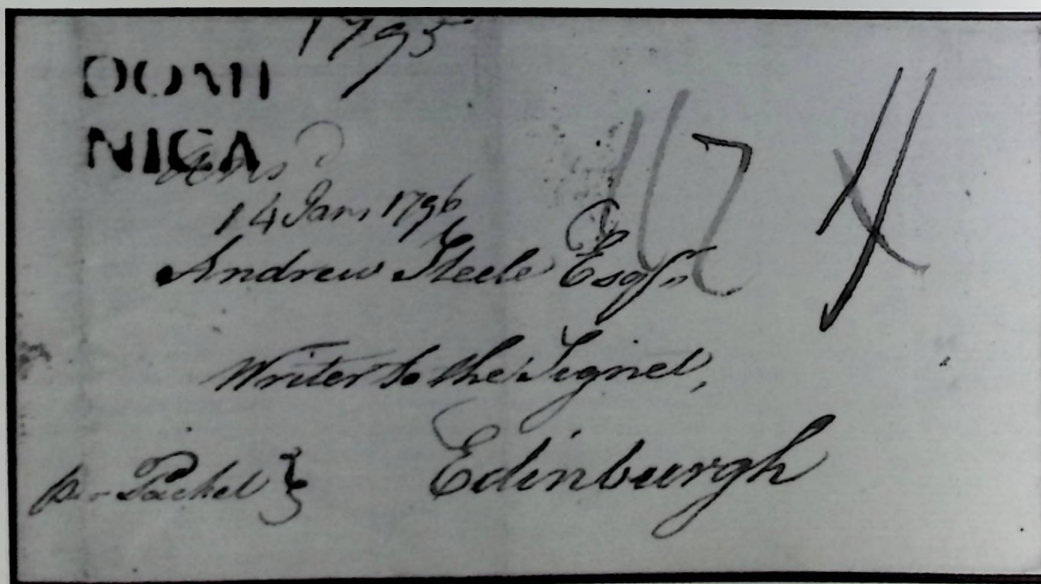 1795
DOMI
NICA
14 Jan 1796
Andrew Steele Esqr
Writer to the Signet,
Edinburgh
per Packet }